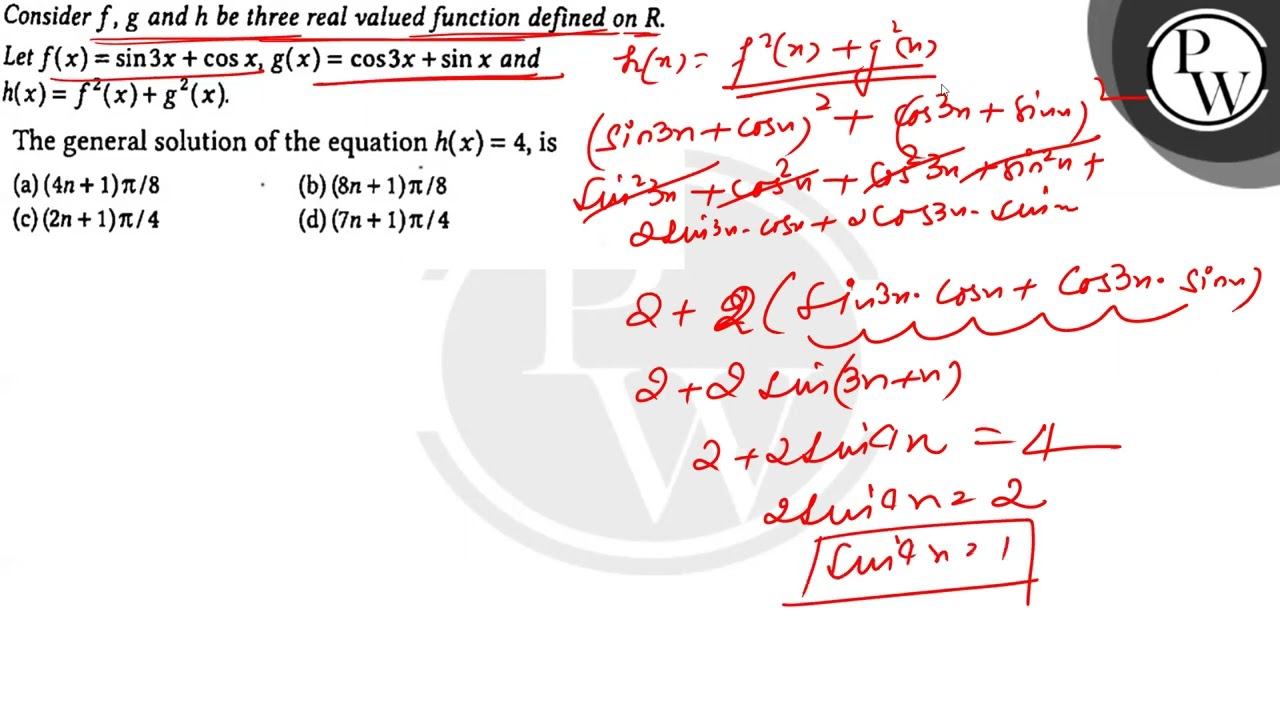 Consider f, g and h be three real valued function defined on R.
Let f(x) = sin3x + cos x, g(x) = cos3x + sin x and
h(x) = f²(x) + g²(x).
The general solution of the equation h(x) = 4, is
(a) (4n + 1)π/8
(b) (8n + 1)π/8
(c) (2n + 1)π/4
(d) (7n + 1)π/4
h(x) = f²(x) + g²(x)
(sin3x + cosx)² + (cos3x + sinx)²
sin²3x + cos²x + cos²3x + sin²x +
2sin3x · cosx + 2cos3x · sinx
2 + 2(sin3x · cosx + cos3x · sinx)
2 + 2 sin(3x+x)
2 + 2sin4x = 4
2sin4x = 2
sin4x = 1
PW
PW